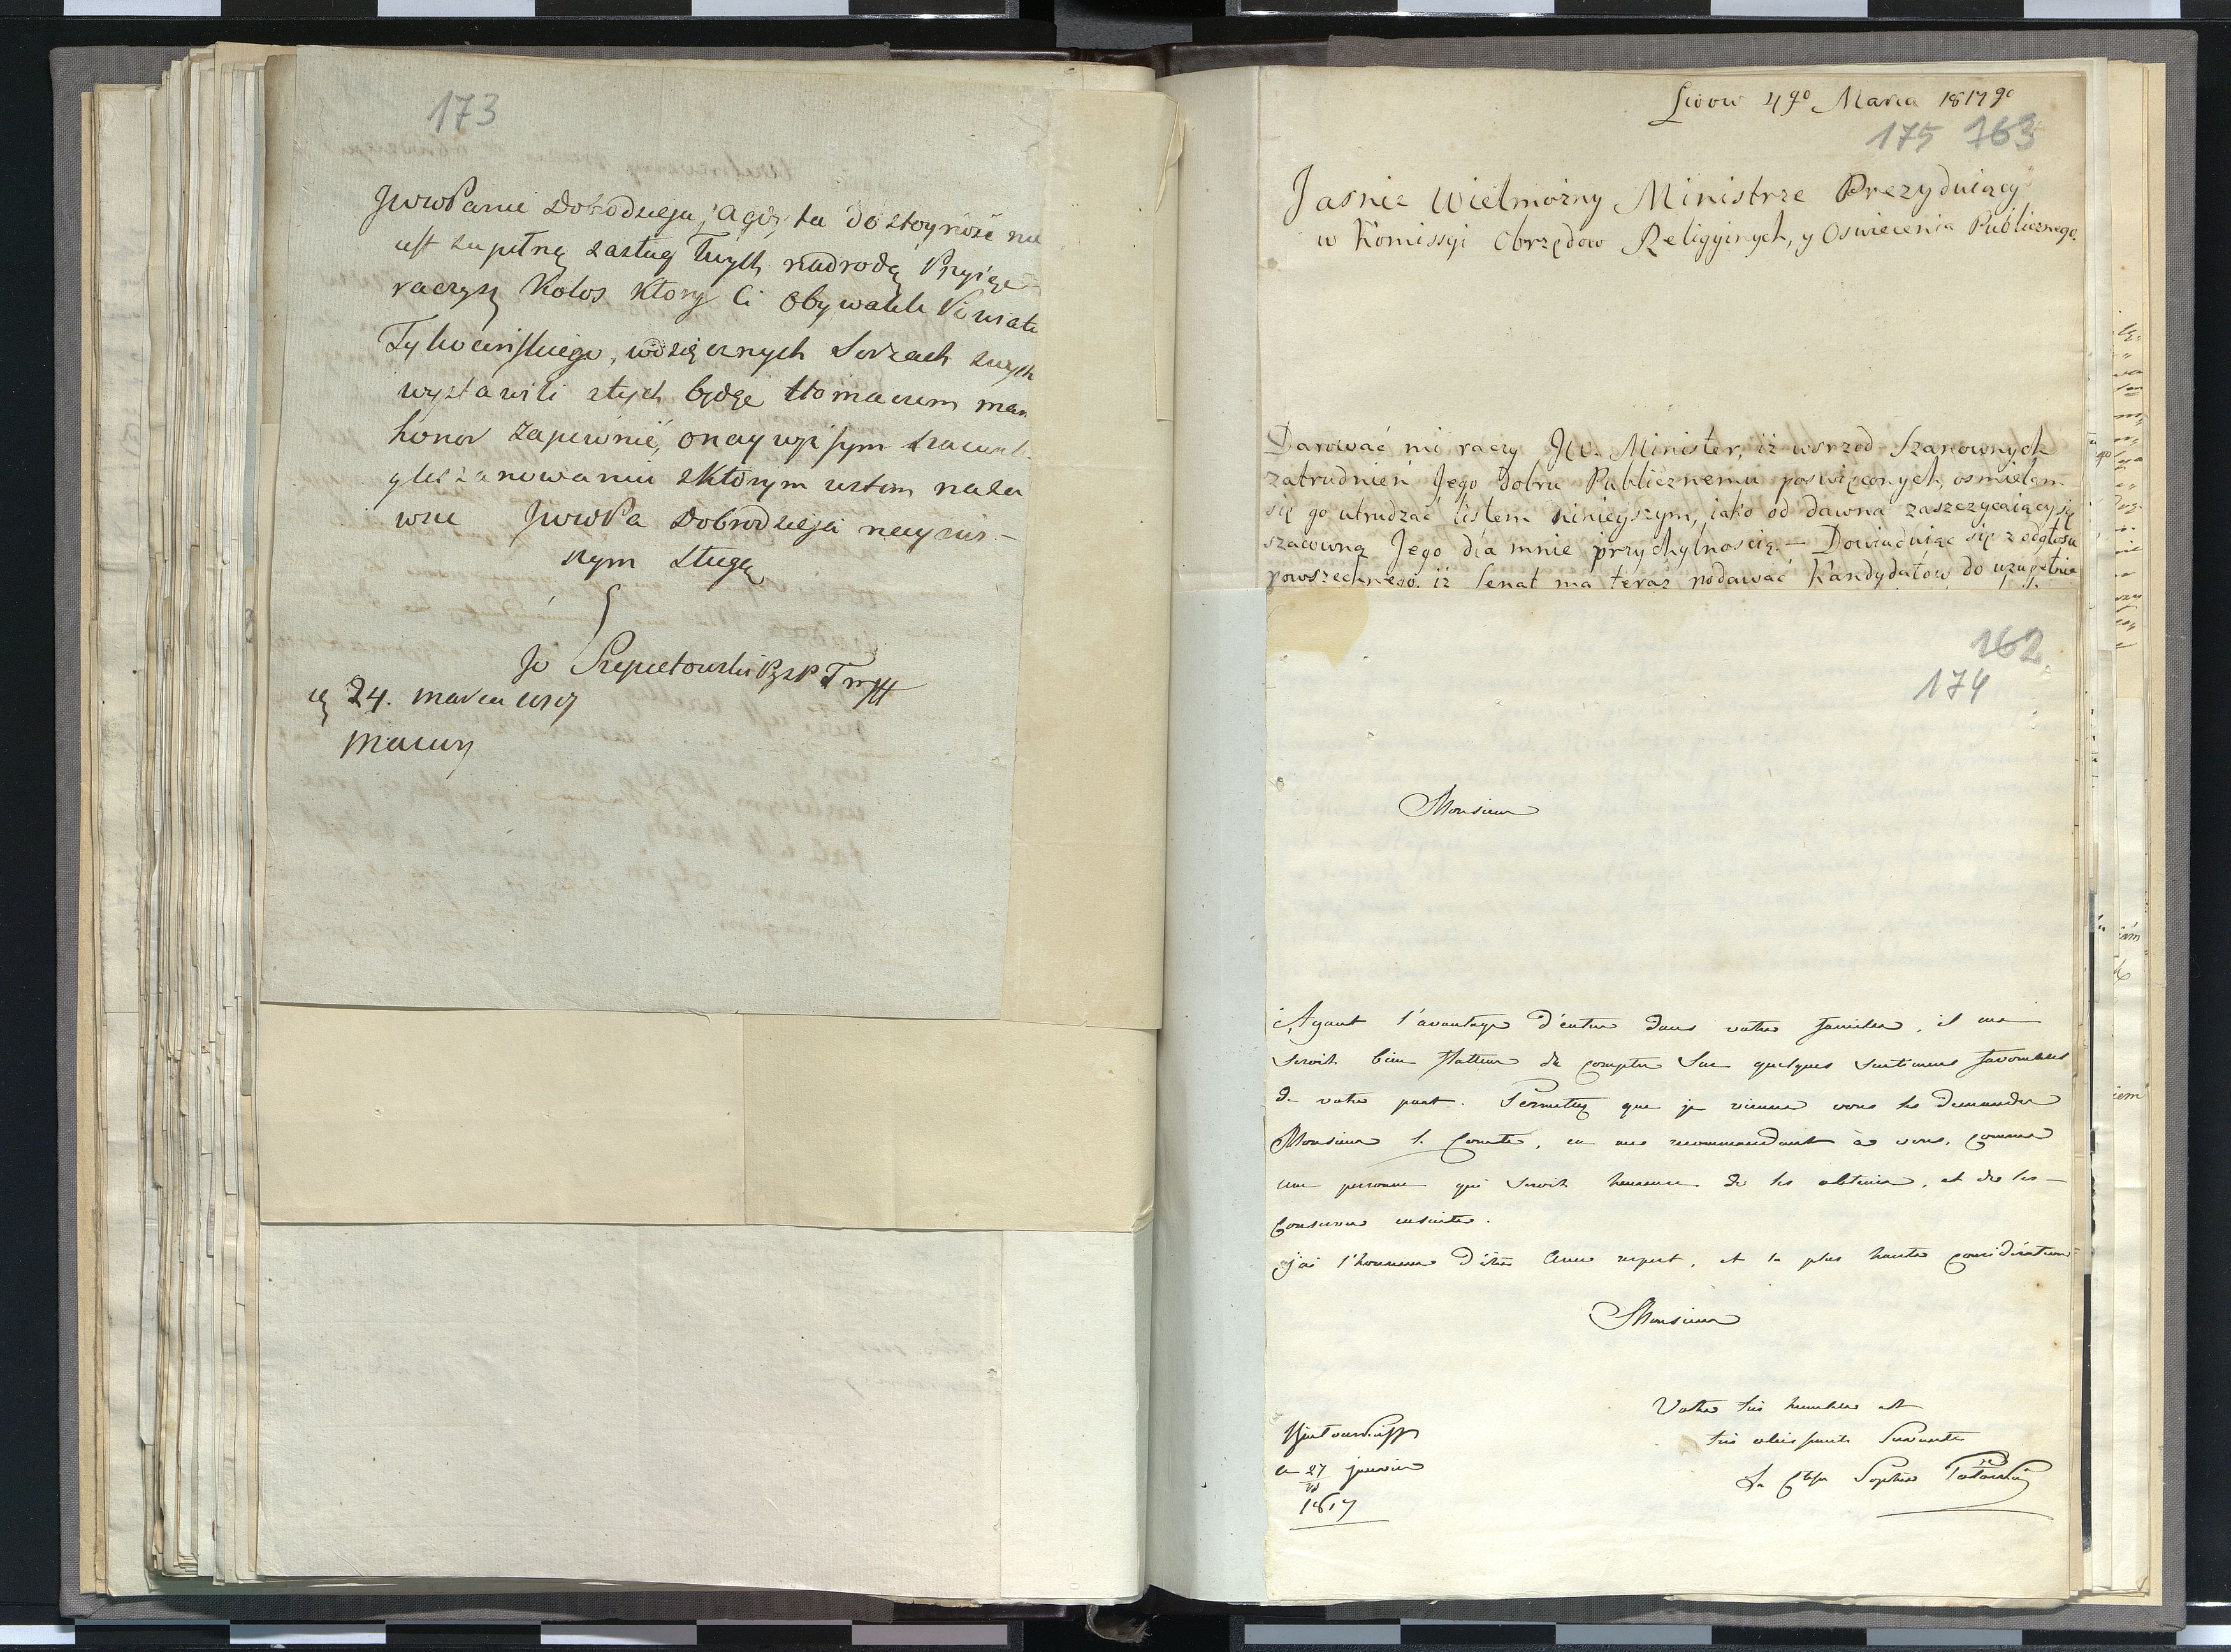 173
JWWPanie Dobodzieja, a gdy ta dostoyność nie
est zupełną zasług Twych nadrodą Przyiąć
raczysz Kolos ktory Ci Obywatele Powiatu
Tykocińskiego, wdzięcznych Sercach swych
wystawili z tych będąc tłomaczem mam
honor zapewnić, oraz
z którym iestem
JWWPa Dobrodzieja nayniż-
szym Sługą
Szepietowski
24. marca 1817
Lwow 4go Marca 1817go
175 163
Jasnie Wielmożny Ministrze Prezyduiący
w Komissyi Obrzędow Religyinych, y Oswiecenia Publicznego.
Darować mi raczy JW. Minister, iż wsrzod Szanownych
zatrudnień Jego Dobru Publicznemu poswięconych, osmielam
się go utrudzać listem ninieyszym, iako od dawna zaszczycaiący się
szacowną Jego dla mnie przychylnoscią. — Dowiaduiąc się z odgłosu
powszechnego, iż Senat ma teraz podawać Kandydatów do uzupełnie
162
174
Monsieur
Ayant l'avantage d'entrer dans votre famille, il me
seroit bien flatteur de compter sur quelques sentimens favorables
de votre part. Permettez que je vienne vous les demander
Monsieur le Comte, en me recommandant à vous, comme
une personne qui seroit heureuse de les obtenir, et de les
conserver ensuite.
j'ai l'honneur d'être avec respect, et la plus haute considération
Monsieur
Votre très humble et
très obéissante Servante
La Ctesse Sophie Potocka
le 27 janvier
1817